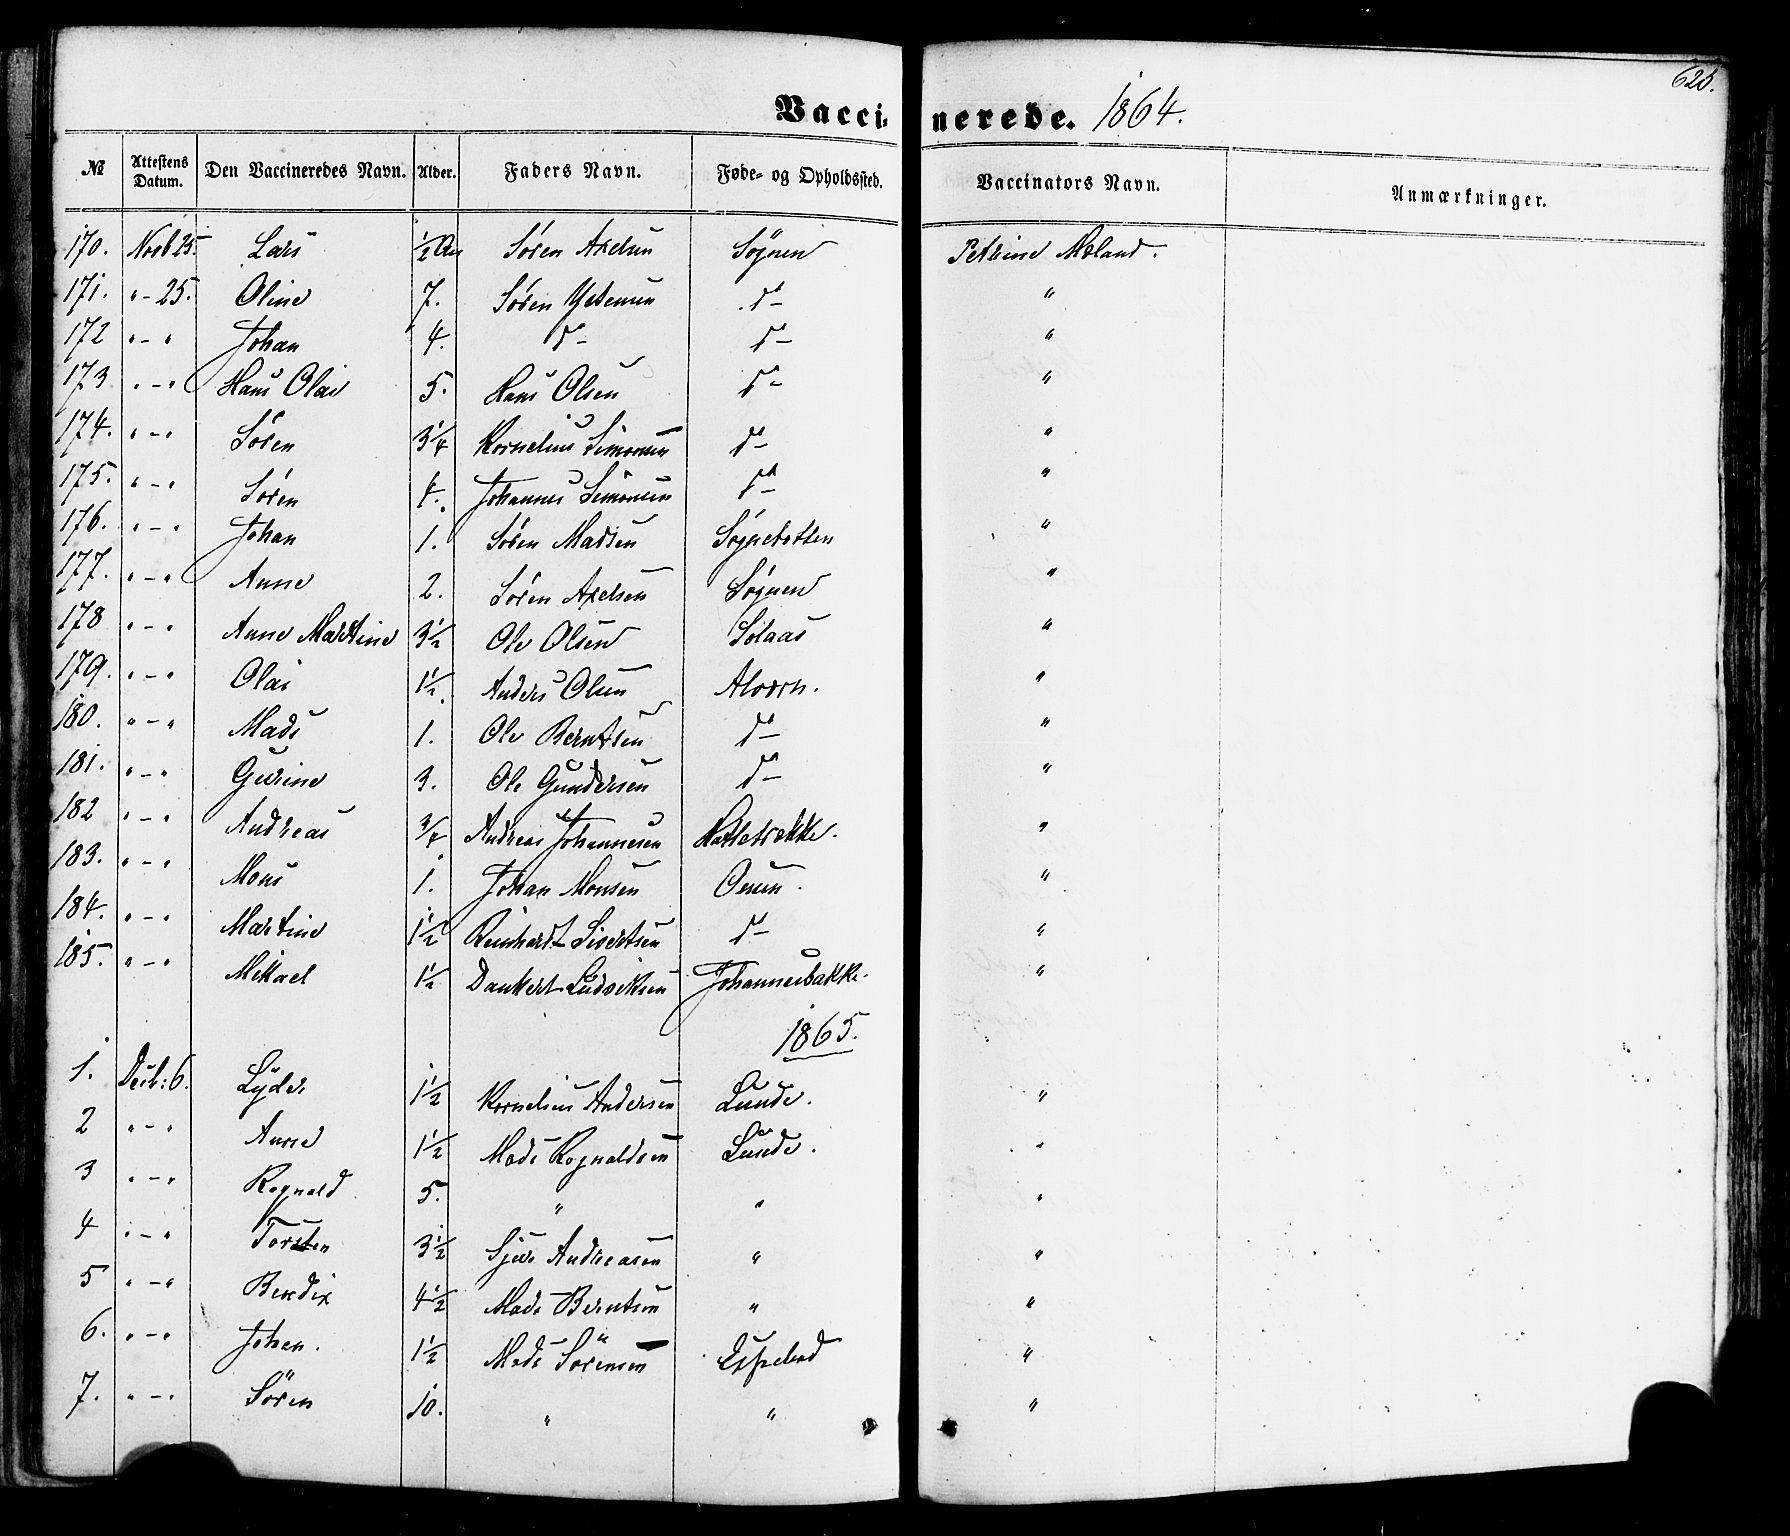 625.
Vaccinerede. 1864.
№ Attestens Datum. Den Vaccineredes Navn. Alder. Faders Navn. Føde- og Opholdssted. Vaccinators Navn. Anmærkninger.
170. Novb 25. Lars ½ Aar Søren Axelsen Sognen Petrine Mæland.
171. " - 25. Oline 7. Søren do - "
172 " - " Johan 4. do - do - "
173 " - " Hans Olai 5. Hans Olsen do - "
174. " - " Søren 3¼ Kornelius Simonsen do - "
175. " - " Søren Johannes Simonsen do - "
176. " - " Johan 1. Søren Madsen "
177. " - " Anne 2. Søren Axelsen Sognen "
178 " - " Anne Martine 3½ Ole Olsen Solaas "
179. " - " Olai 1½. Anders Olsen "
180. " - " Mads 1. Ole Berntsen do - "
181. " - " Gurine 3. Ole Gundersen do - "
182 " - " Andreas ¾ Andreas Johannesen "
183. " - " Mons 1. Johan Monsen "
184. " - " Martine 1½ Reinhardt Sivertsen do - "
185. " - " Mikael 1½ Dankert Ludviksen Johannesbakke. "
1865.
1. Decb: 6. Lyder 1½ Kornelius Andersen Lunde. "
2 " - " Anne 1½ Mads Rognaldsen Lunde. "
3 " - " Rognald 5. " " "
4 " - " Torsten 3½ Sjur Andreasen " "
5 " - " Bendix 4½ Mads Berntsen " "
6. " - " Johan. 1½ Mads Sørensen Espeland "
7. " - " Søren 10. " " "